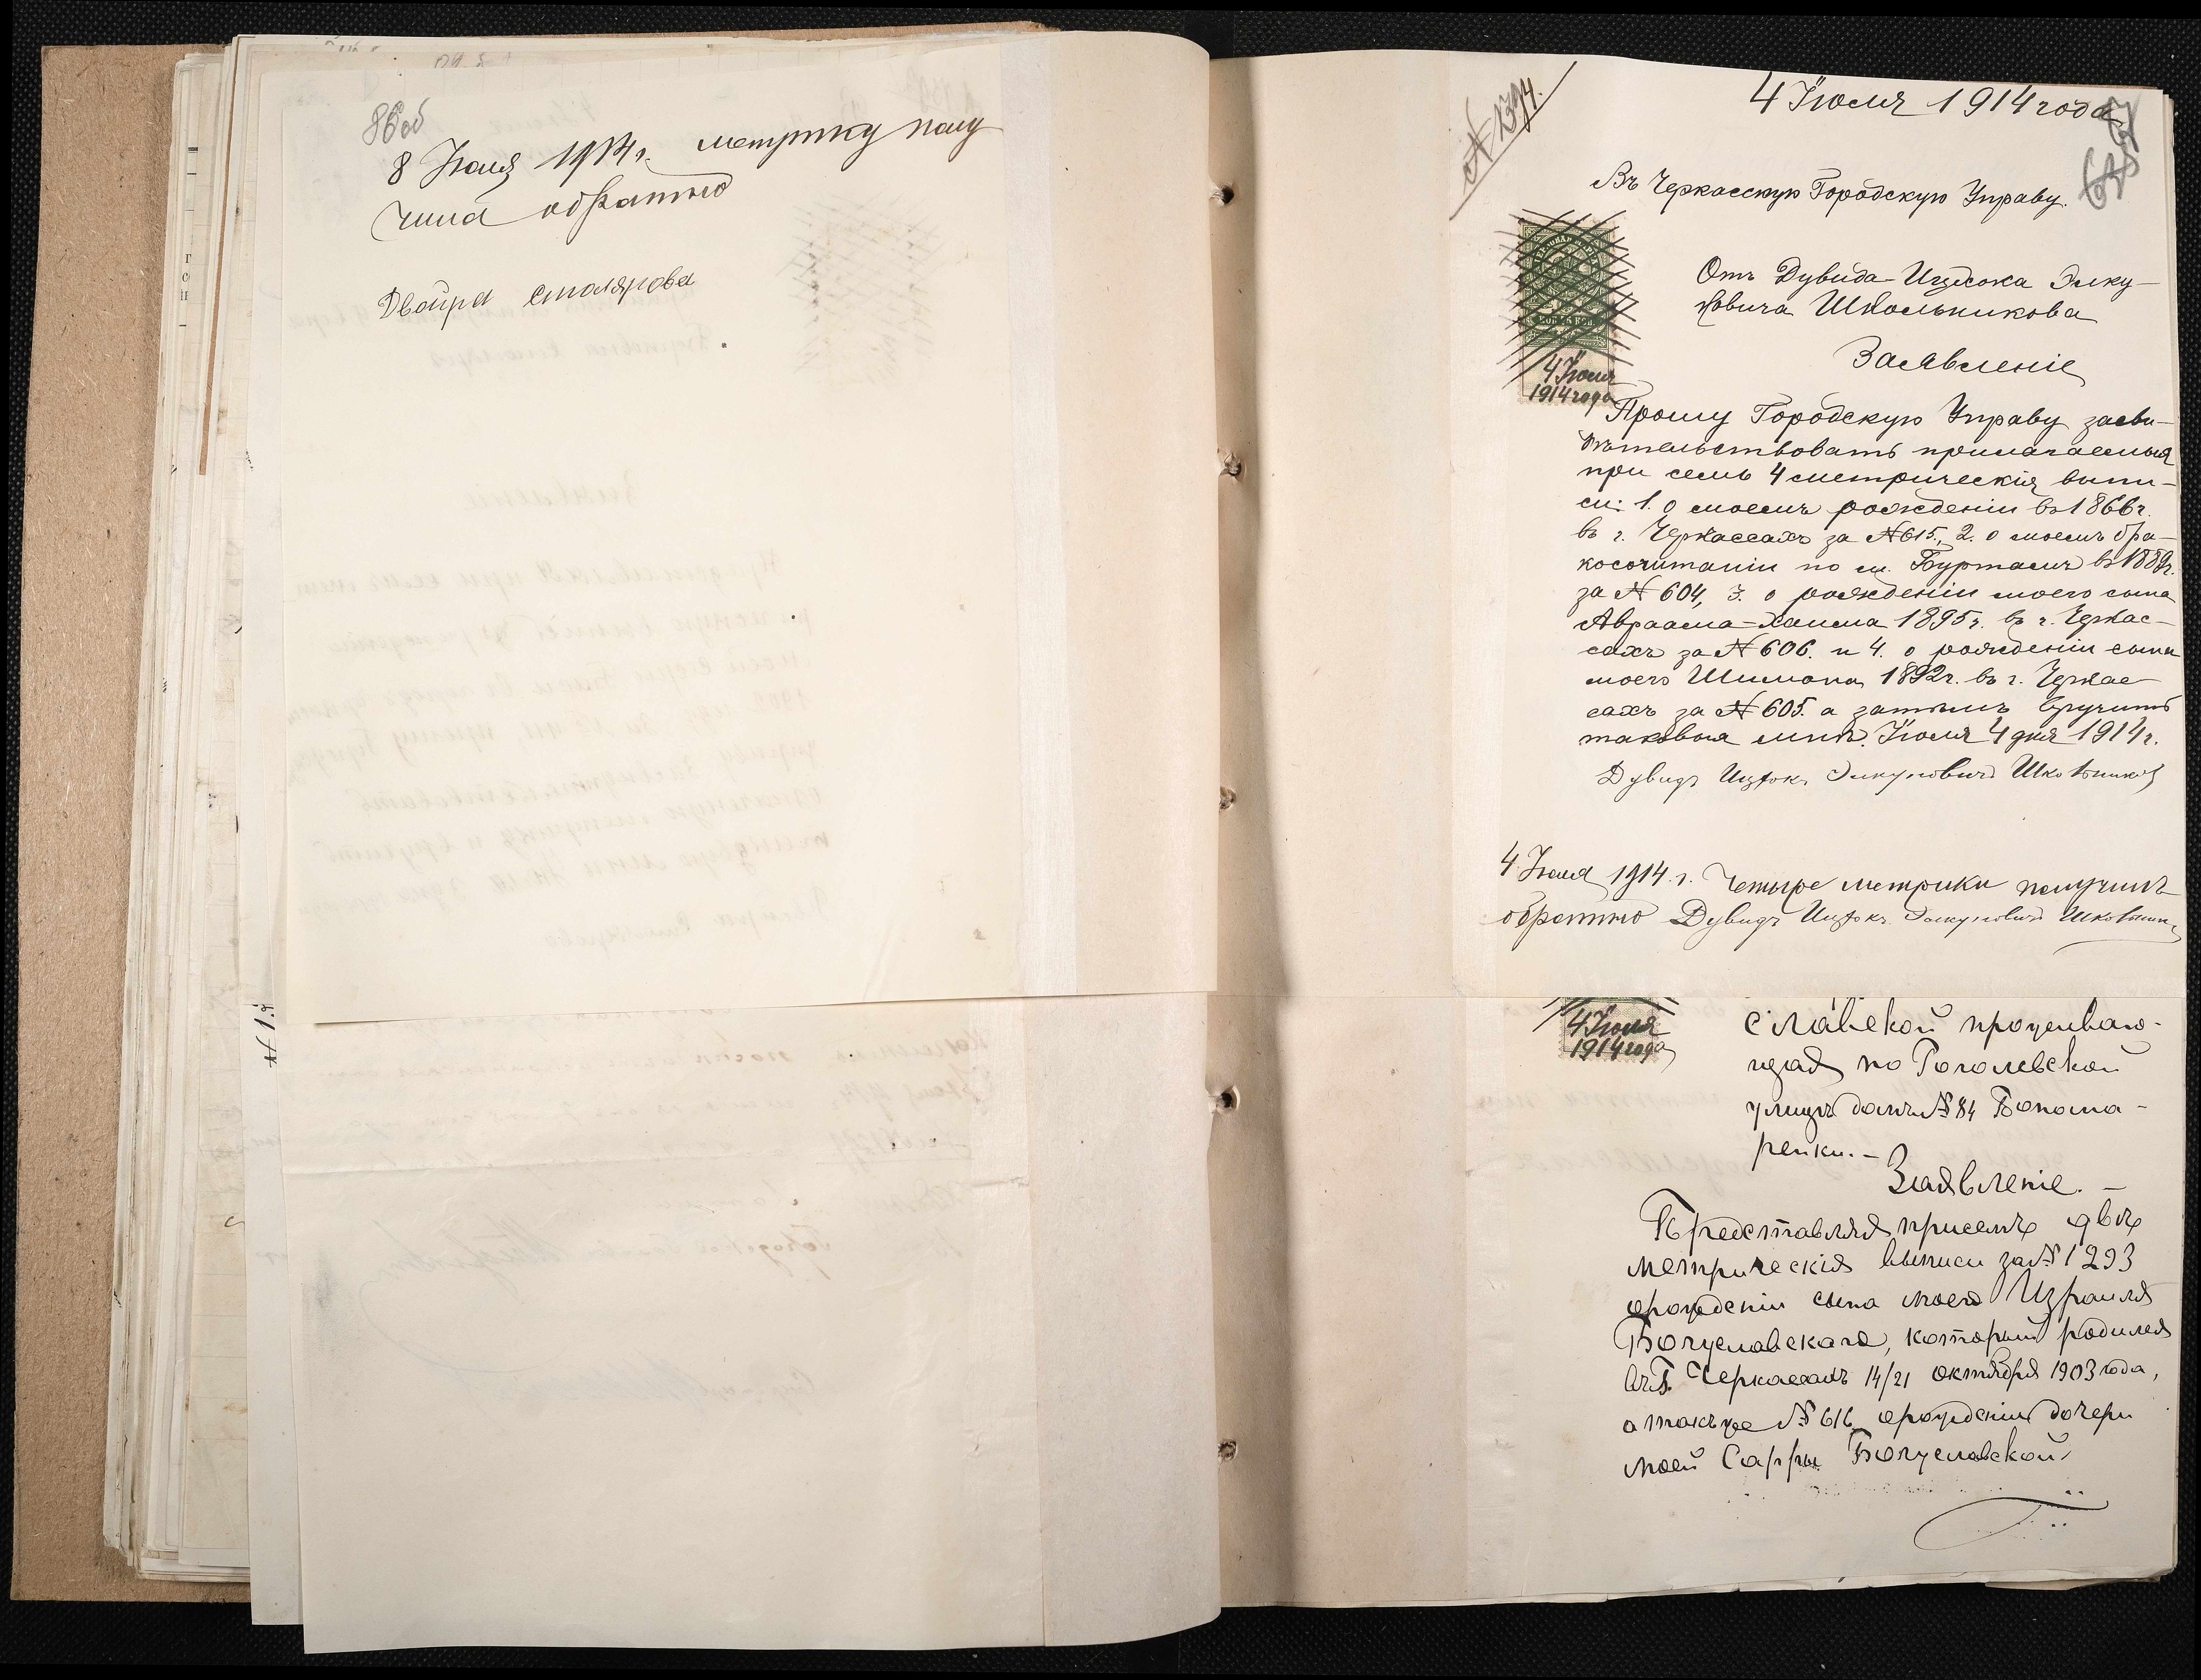 86об
8 Июля 1914 г. метрику полу
чила обратно
Двойра Столярова
№ 1394.
4 Іюля 1914 года
Въ Черкасскую Городскую Управу.
Отъ Дувида-Ицхока Элку-
новича Школьникова
4 Іюля
1914 года
Заявленіе
Прошу Городскую Управу засви-
дѣтельствовать прилагаемыя
при семъ 4 метрическія выпи-
си: 1. о моемъ рожденіи въ 1866 г.
въ г. Черкассахъ за № 615., 2. о моемъ бра-
косочитаніи по м. Буртамъ въ 1889 г.
за № 604, 3. о рожденіи моего сына
Авраама-Хаима 1895 г. въ г. Черкас-
сахъ за № 606. и 4. о рожденіи сына
моего Шимона 1892 г. въ г. Черкас
сахъ за № 605. а затѣмъ вручить
таковыя мнѣ. Іюля 4 дня 1914 г.
Дувидъ Ицхокъ Элкуновичъ Школьников
4 Июля 1914. г. Четыре метрики получилъ
обратно Дувидъ Ицхокъ Элкуновичъ Школьник
4 Іюля
1914 года
славской проживаю-
щая по Гоголевской
улицѣ домъ № 84 Бонома-
ренки. –
Заявленіе. –
Представляя присемъ двѣ
метрическія выписи за № 1293
орождении сына моего Израиля
Богуславскаго, который родился
въ г. Черкассахъ 14/21 октября 1903 года,
а такъ же № 616 орождении дочери
моей Сарры Богуславской